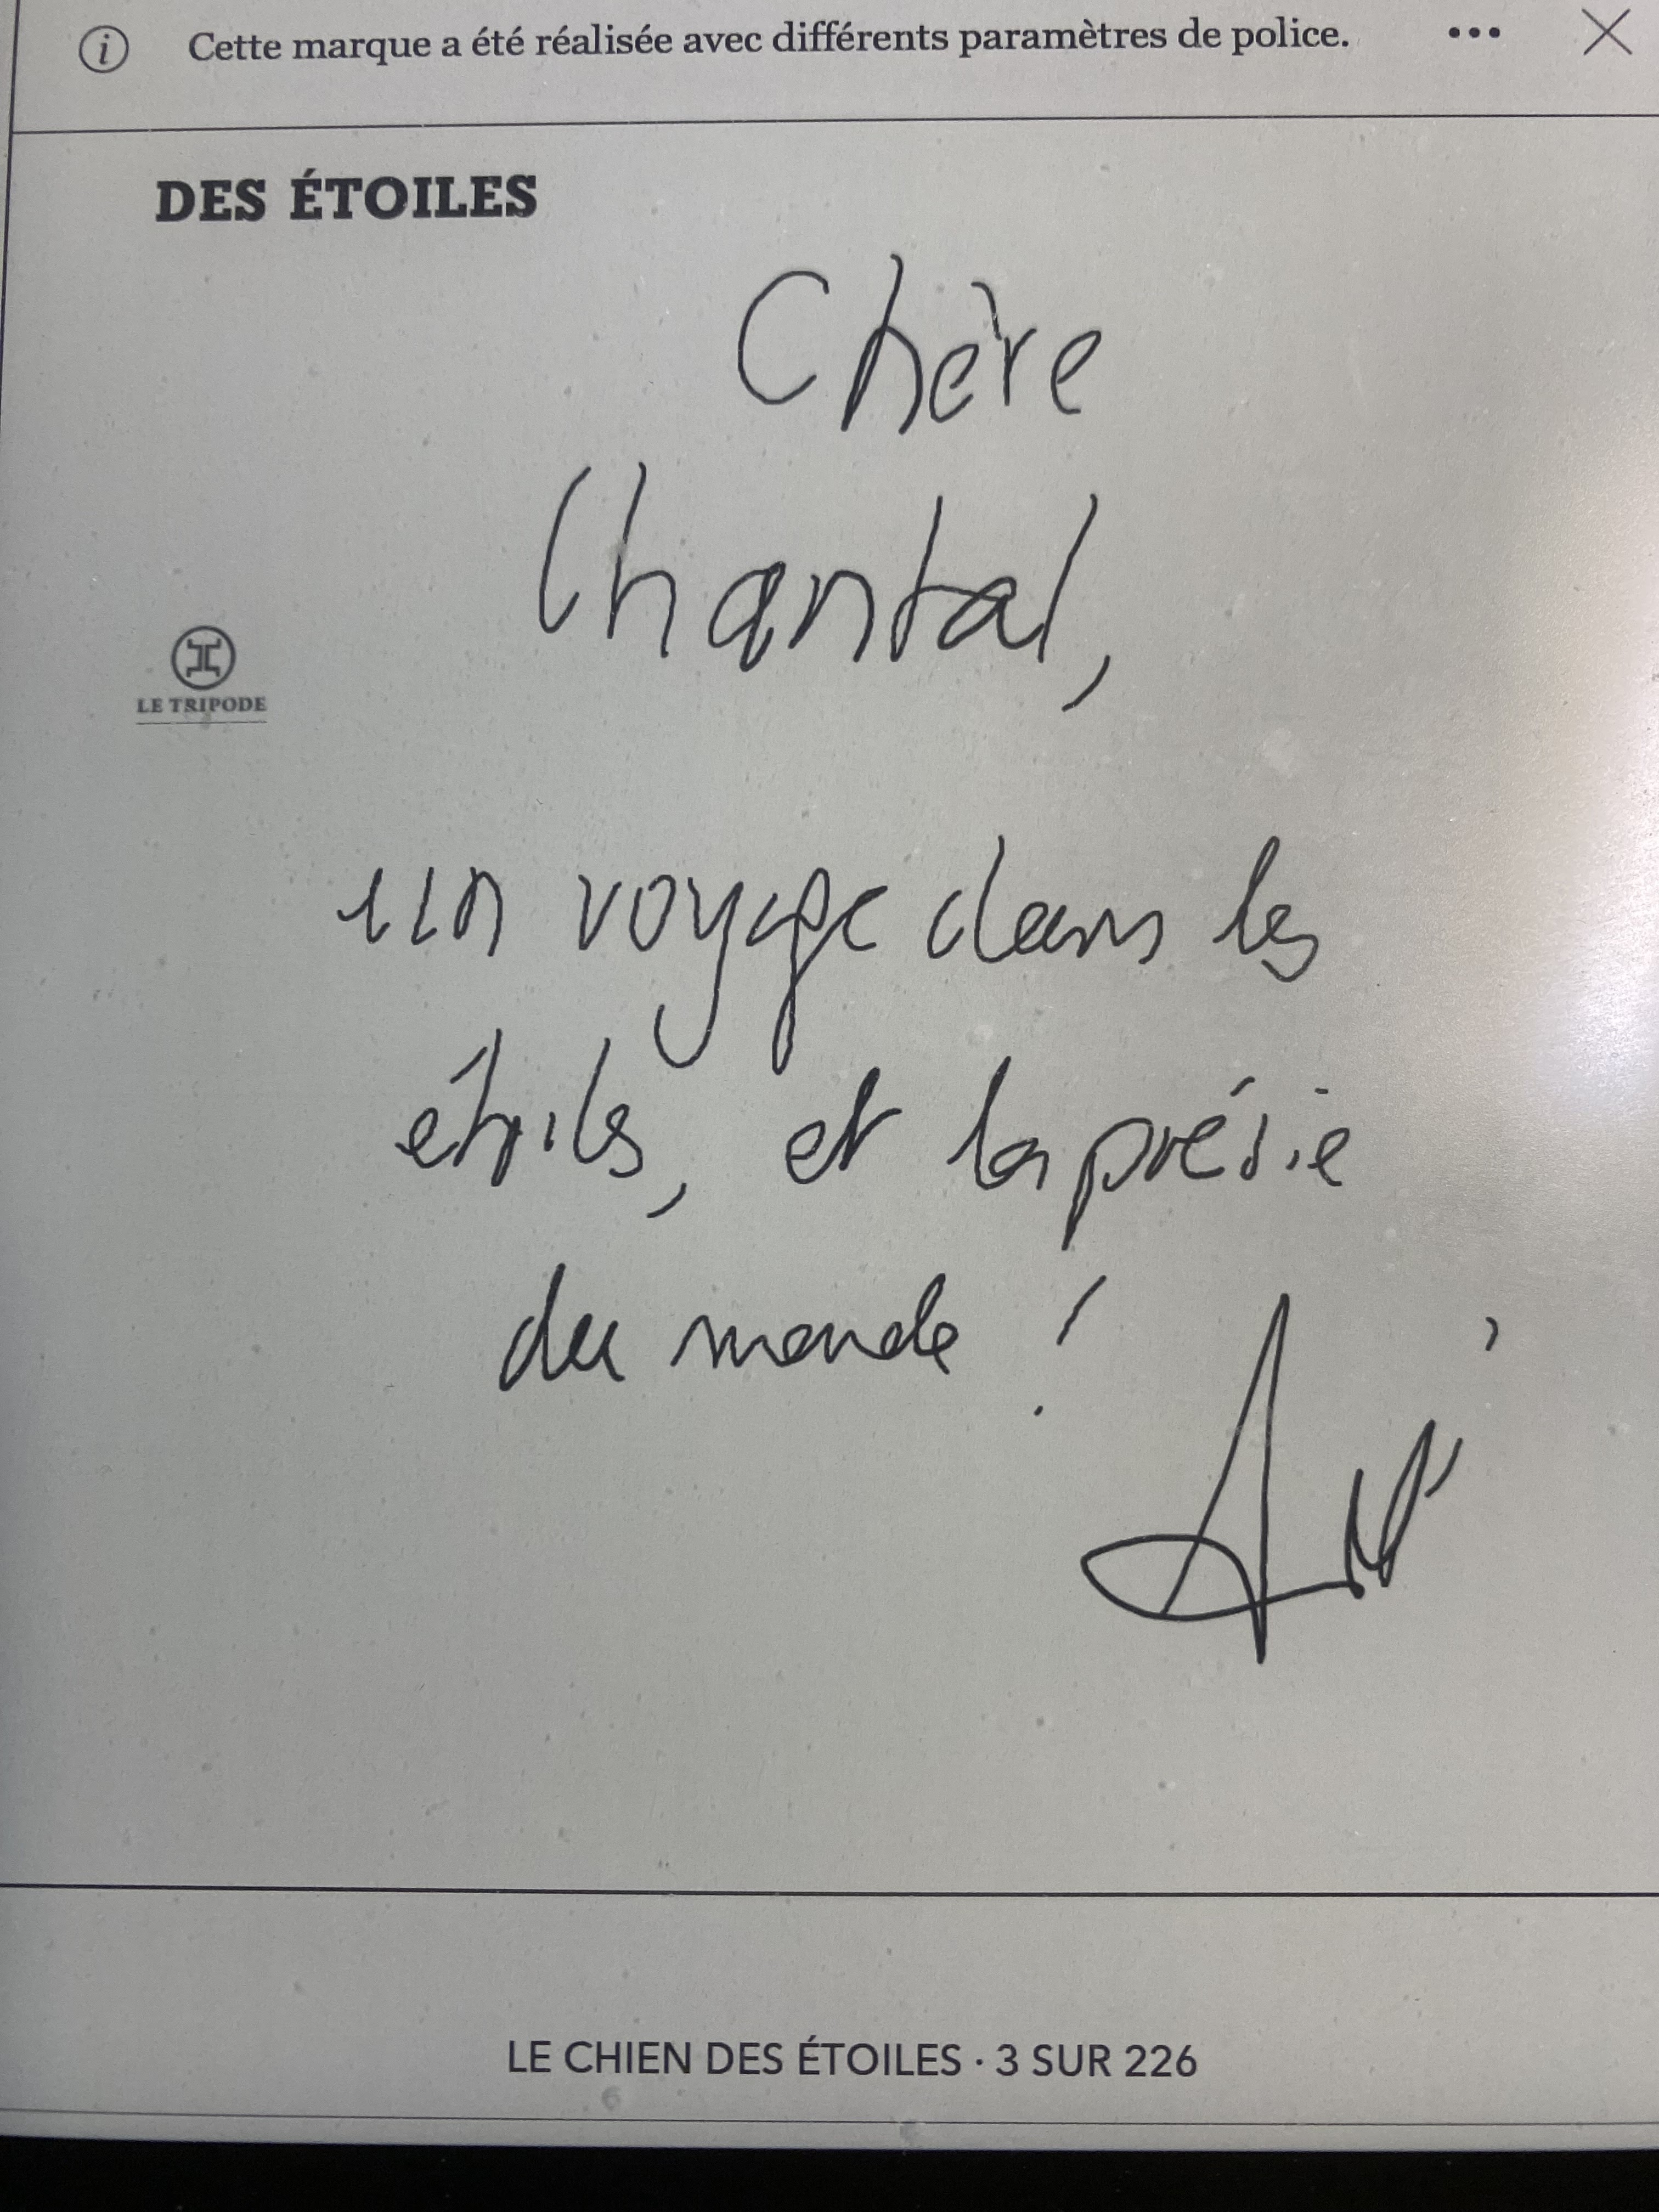 Cette marque a été réalisée avec différents paramètres de police.
DES ÉTOILES
Chère
Chantal,
LE TRIPODE
un voyage dans les
étoiles, et la poésie
du monde !
LE CHIEN DES ÉTOILES · 3 SUR 226